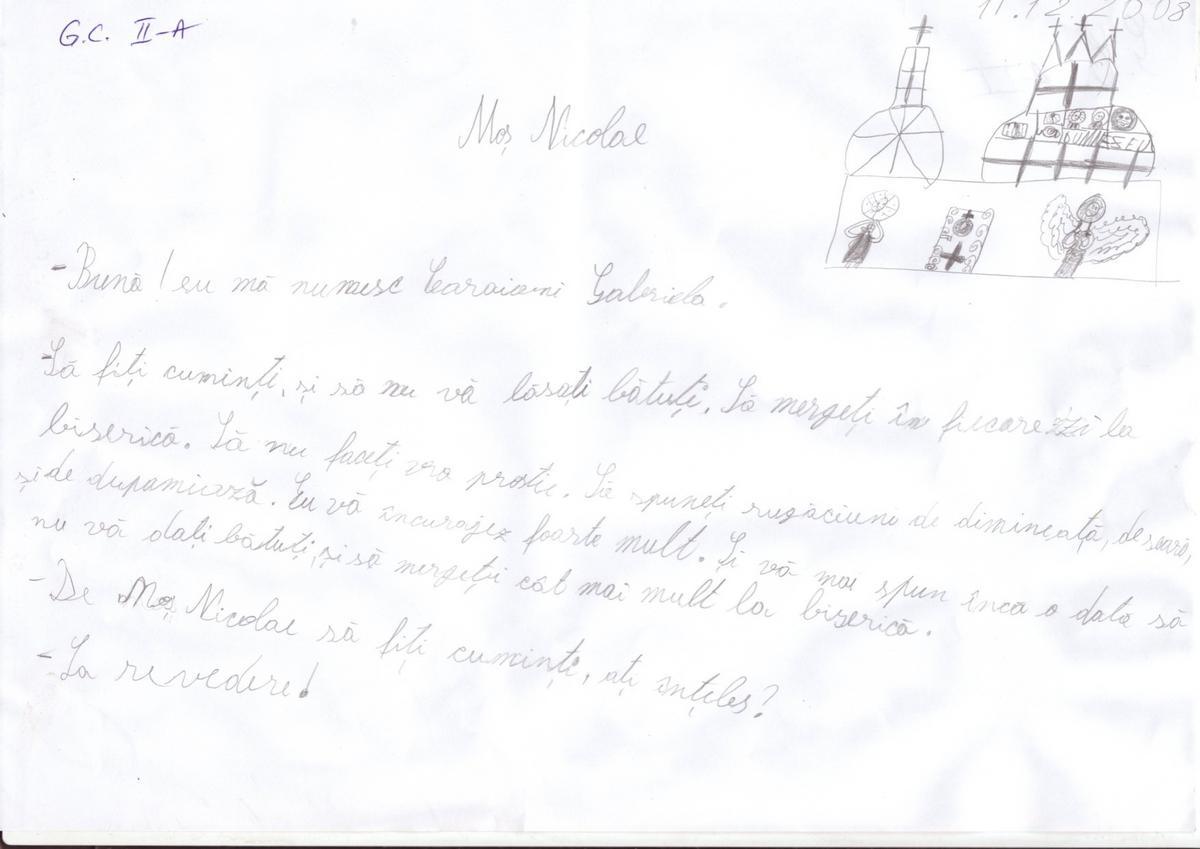 11.12.2008
G.C. II-A
Moș Nicolae
DUMNESEU
- Bună! eu mă numesc Caraiani Gabriela.
- Să fiți cuminți, și să nu vă lăsați bătuți. Să mergeți în fiecare zzi la
biserică. Să nu faceți vro prostie. Să spuneți rugăciuni de dimineață, de seară,
și de dupamiază. Eu vă încurajez foarte mult. Și vă mai spun încă o dată să
nu vă dați bătuți, și să mergeți cât mai mult la biserică.
- De Moș Nicolae să fiți cuminți, ați înțeles?
- La revedere!